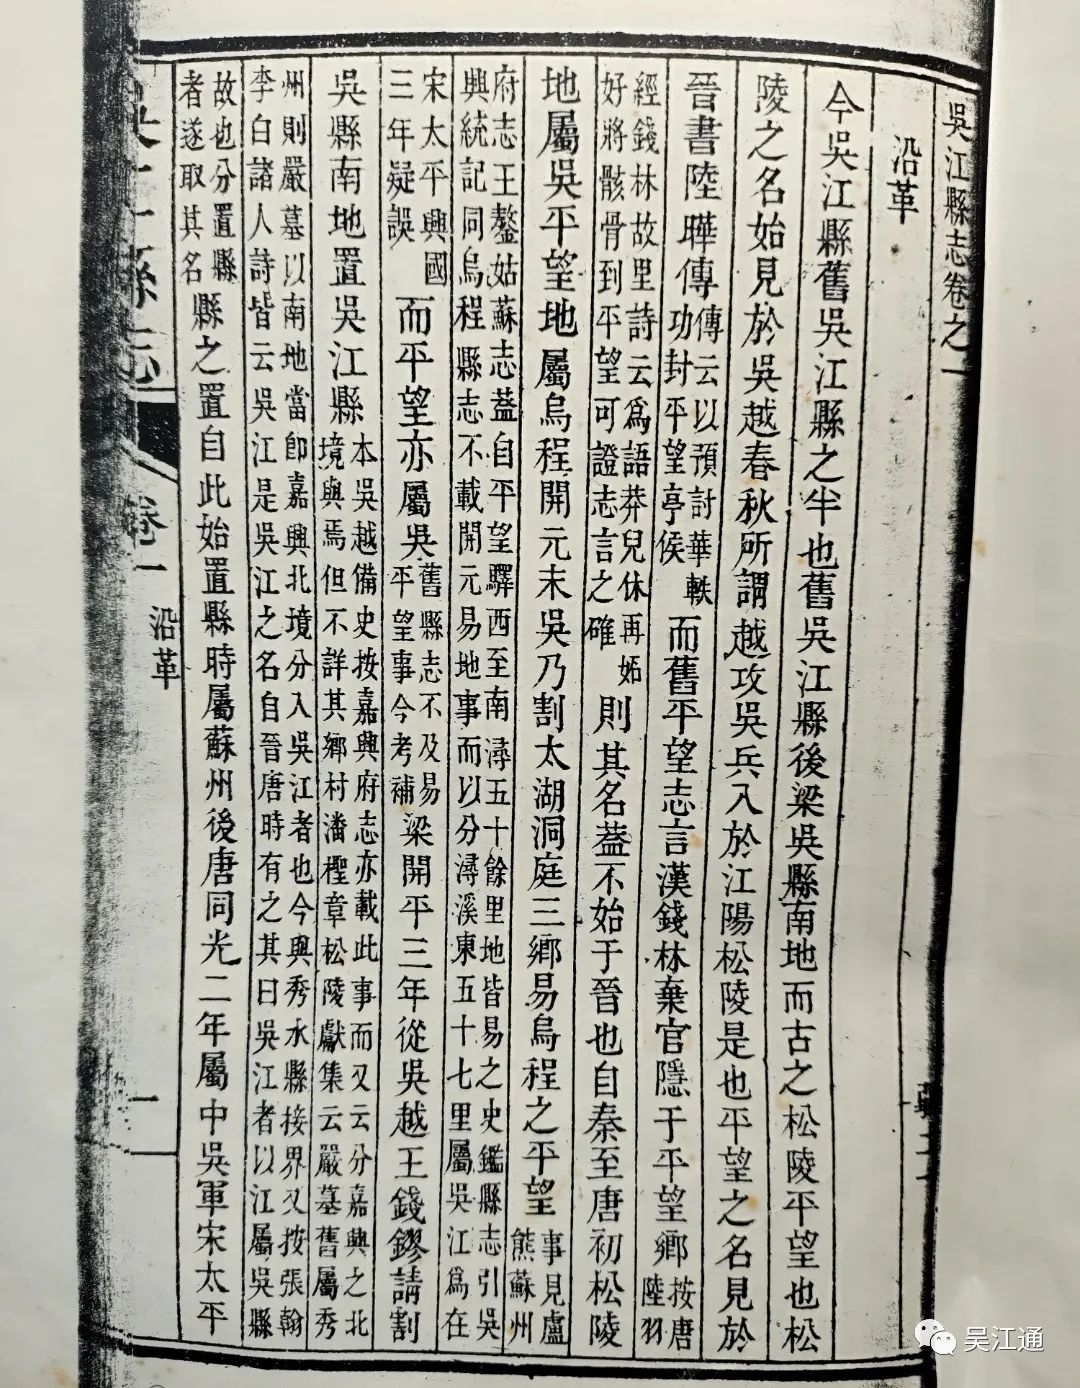 吳江縣志卷之一
沿革
今吳江縣舊吳江縣之半也舊吳江縣後梁吳縣南地而古之松陵平望也松
陵之名始見於吳越春秋所謂越攻吳兵入於江陽松陵是也平望之名見於
晉書陸曄傳傳云以預討華軼功封平望亭侯而舊平望志言漢錢林棄官隱于平望鄉按唐陸羽
經錢林故里詩云爲語莽兒休再姤好將骸骨到平望可證志言之確則其名葢不始于晉也自秦至唐初松陵
地屬吳平望地屬烏程開元末吳乃割太湖洞庭三鄉易烏程之平望事見盧熊蘇州
府志王鏊姑蘇志葢自平望驛西至南潯五十餘里地皆易之史鑑縣志引吳
興統記同烏程縣志不載開元易地事而以分潯溪東五十七里屬吳江爲在
宋太平興國三年疑誤而平望亦屬吳舊縣志不及易平望事今考補梁開平三年從吳越王錢鏐請割
吳縣南地置吳江縣本吳越備史按嘉興府志亦載此事而又云分嘉興之北境與焉但不詳其鄉村潘檉章松陵獻集云嚴墓舊屬秀
州則嚴墓以南地當卽嘉興北境分入吳江者也今與秀水縣接界又按張翰
李白諸人詩皆云吳江是吳江之名自晉唐時有之其曰吳江者以江屬吳縣
故也分置縣者遂取其名縣之置自此始置縣時屬蘇州後唐同光二年屬中吳軍宋太平
卷一
沿革
一
吴江通